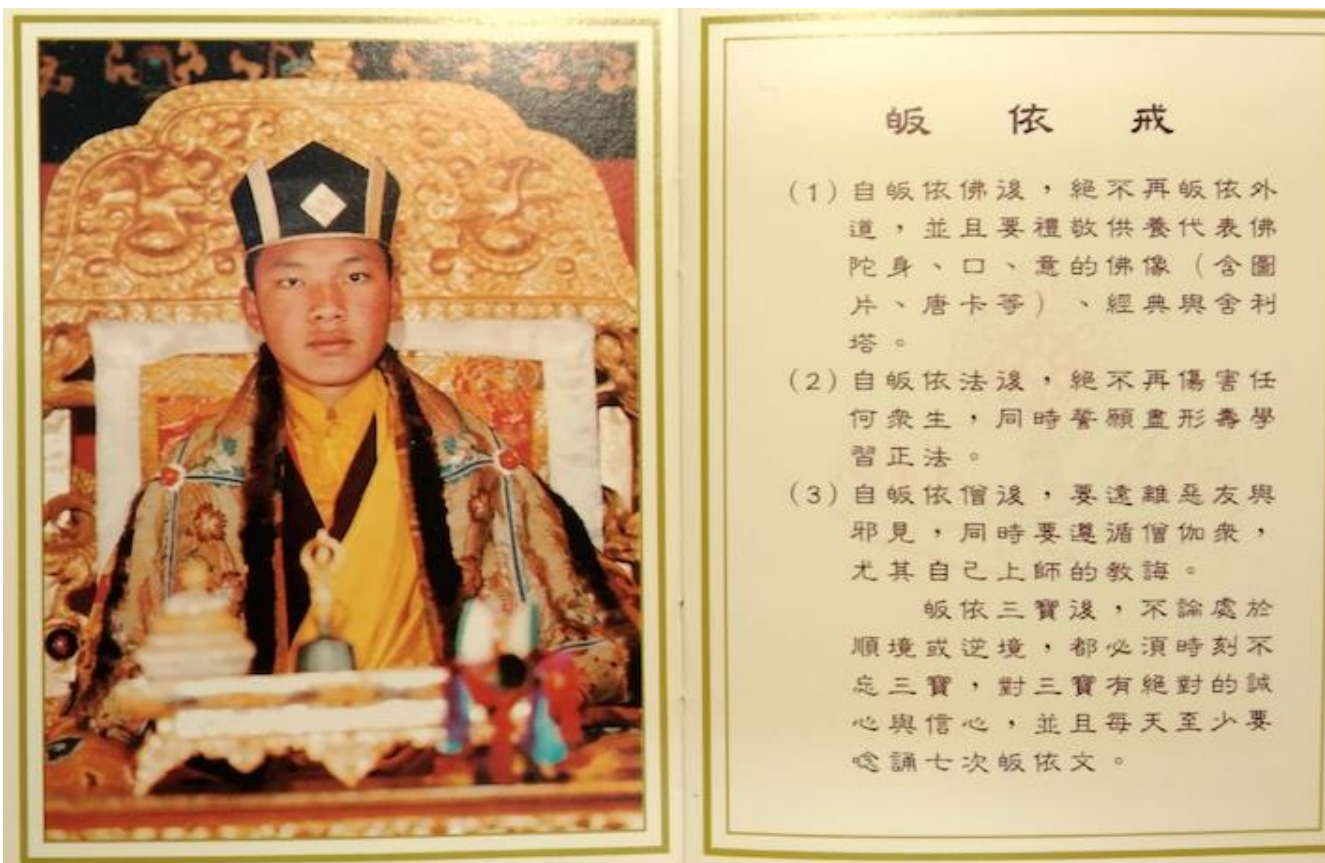 皈依戒
(1)自皈依佛後，絕不再皈依外
道，並且要禮敬供養代表佛
陀身、口、意的佛像（含圖
片、唐卡等）、經典與舍利
塔。
(2)自皈依法後，絕不再傷害任
何眾生，同時誓願盡形壽學
習正法。
(3)自皈依僧後，要遠離惡友與
邪見，同時要遵循僧伽眾，
尤其自己上師的教誨。
皈依三寶後，不論處於
順境或逆境，都必須時刻不
忘三寶，對三寶有絕對的誠
心與信心，並且每天至少要
唸誦七次皈依文。